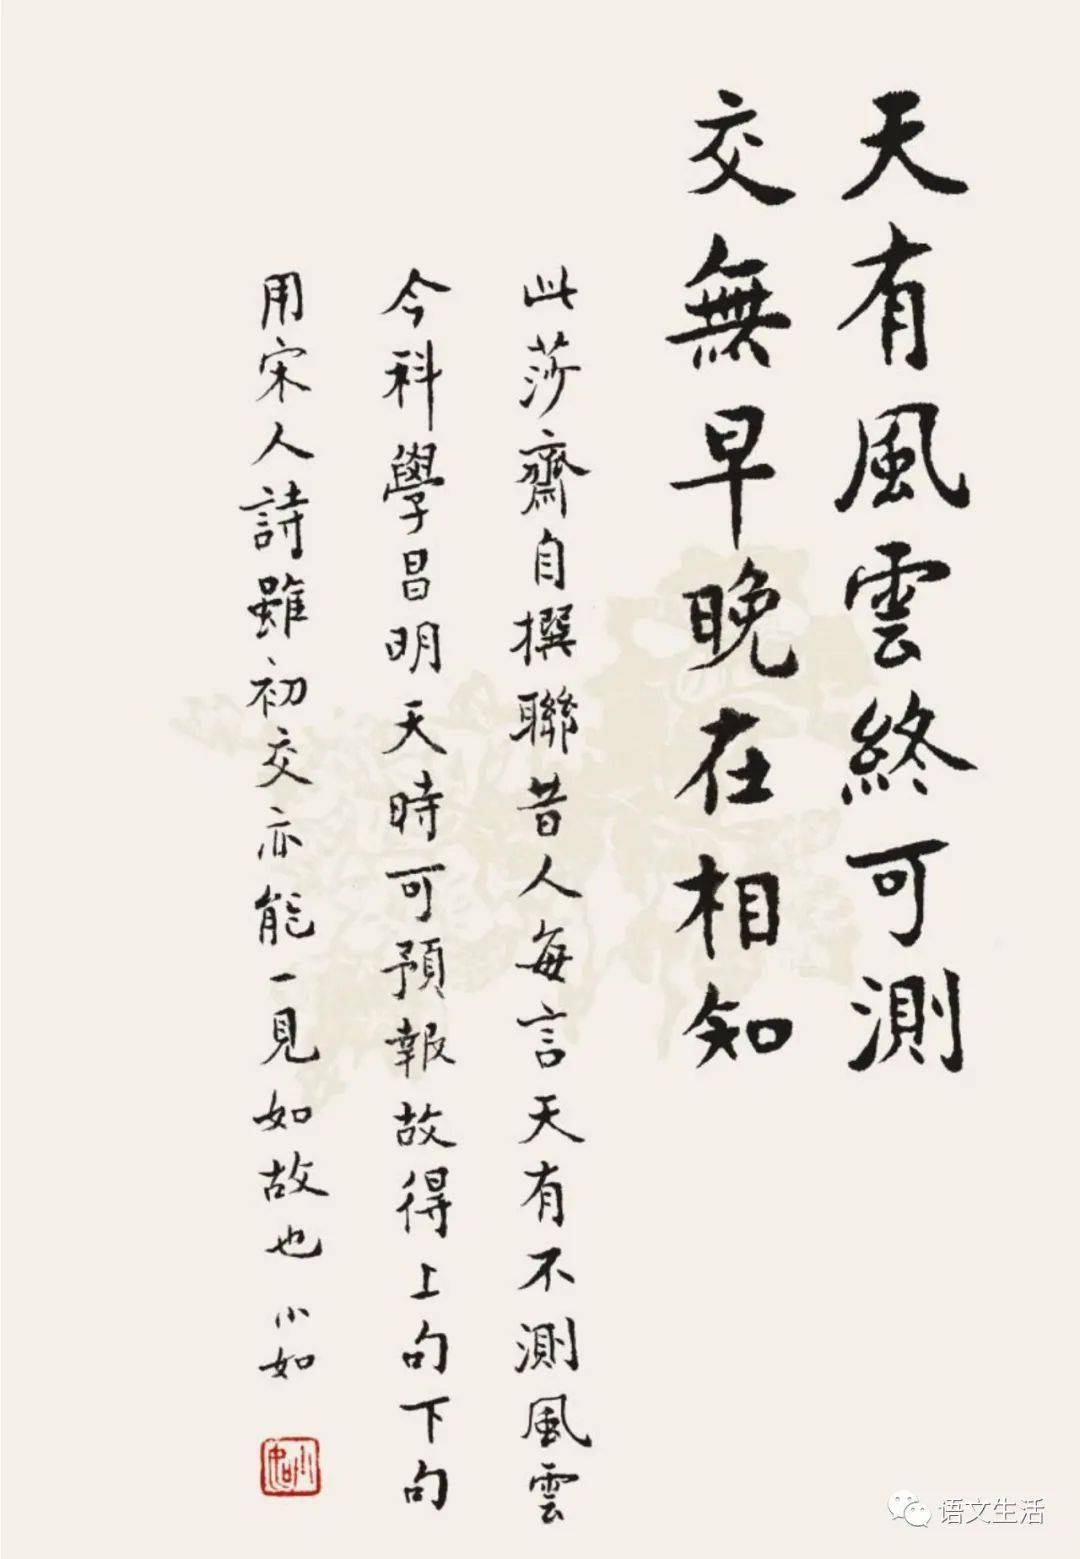 天有風雲終可測
交無早晚在相知
此莎齋自撰聯昔人每言天有不測風雲
今科學昌明天時可預報故得上句下句
用宋人詩雖初交亦能一見如故也 小如
语文生活